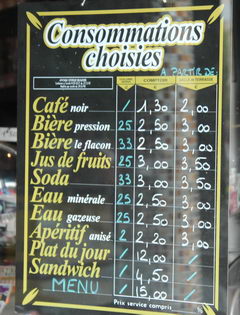 Consommations
choisies
A PARTIR DE:
COMPTOIR
Café noir / 1,30 2,00
Bière pression 25 2,50 3,00
Bière le flacon 33 2,50 3,00
Jus de fruits 25 3,00 3,50
Soda 33 3,00 3,50
Eau minérale 25 2,50 3,00
Eau gazeuse 25 2,50 3,00
Apéritif anisé 2 2,20 3,00
Plat du jour / 12,00 /
Sandwich / 4,50 /
MENU / 15,00 /
Prix service compris